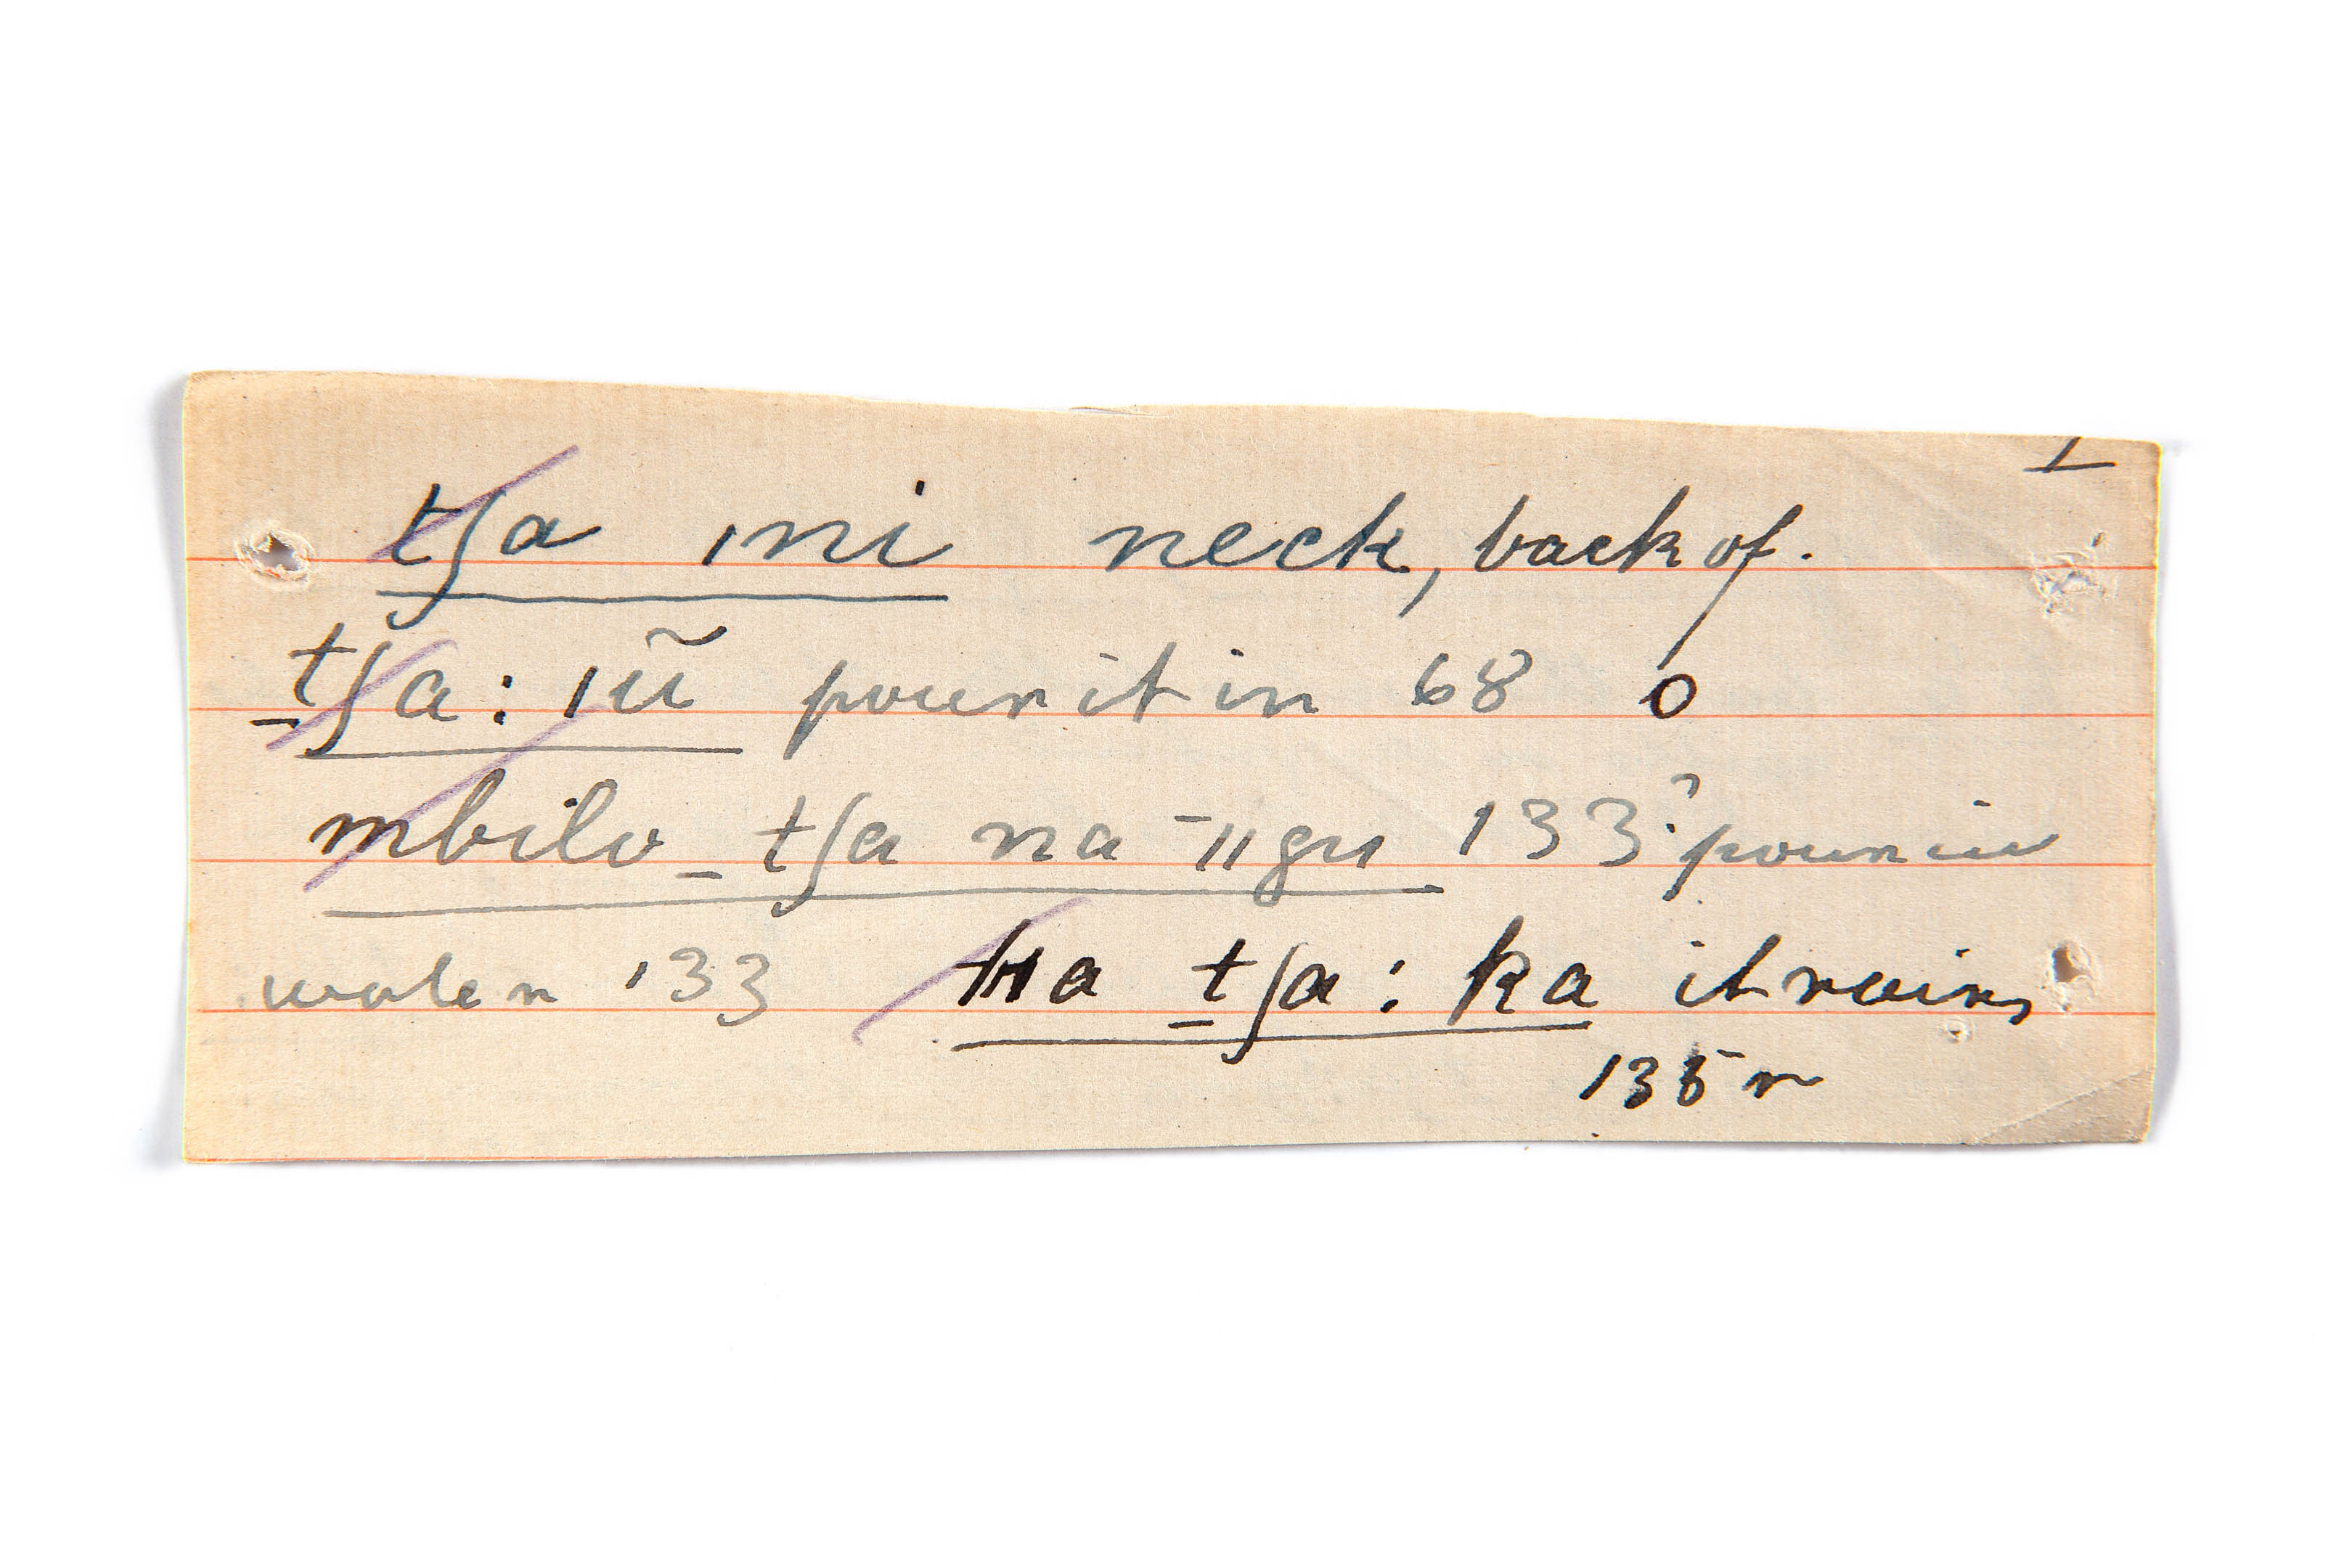 I
tʃa ˌni neck, back of.
_tʃa: ˌũ pour it in 68 O
mbilo _tʃa na ˉˌˌgu 133? pour in
water 133 ha _tʃa: ka it rains
135 r